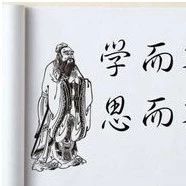 学而
思而